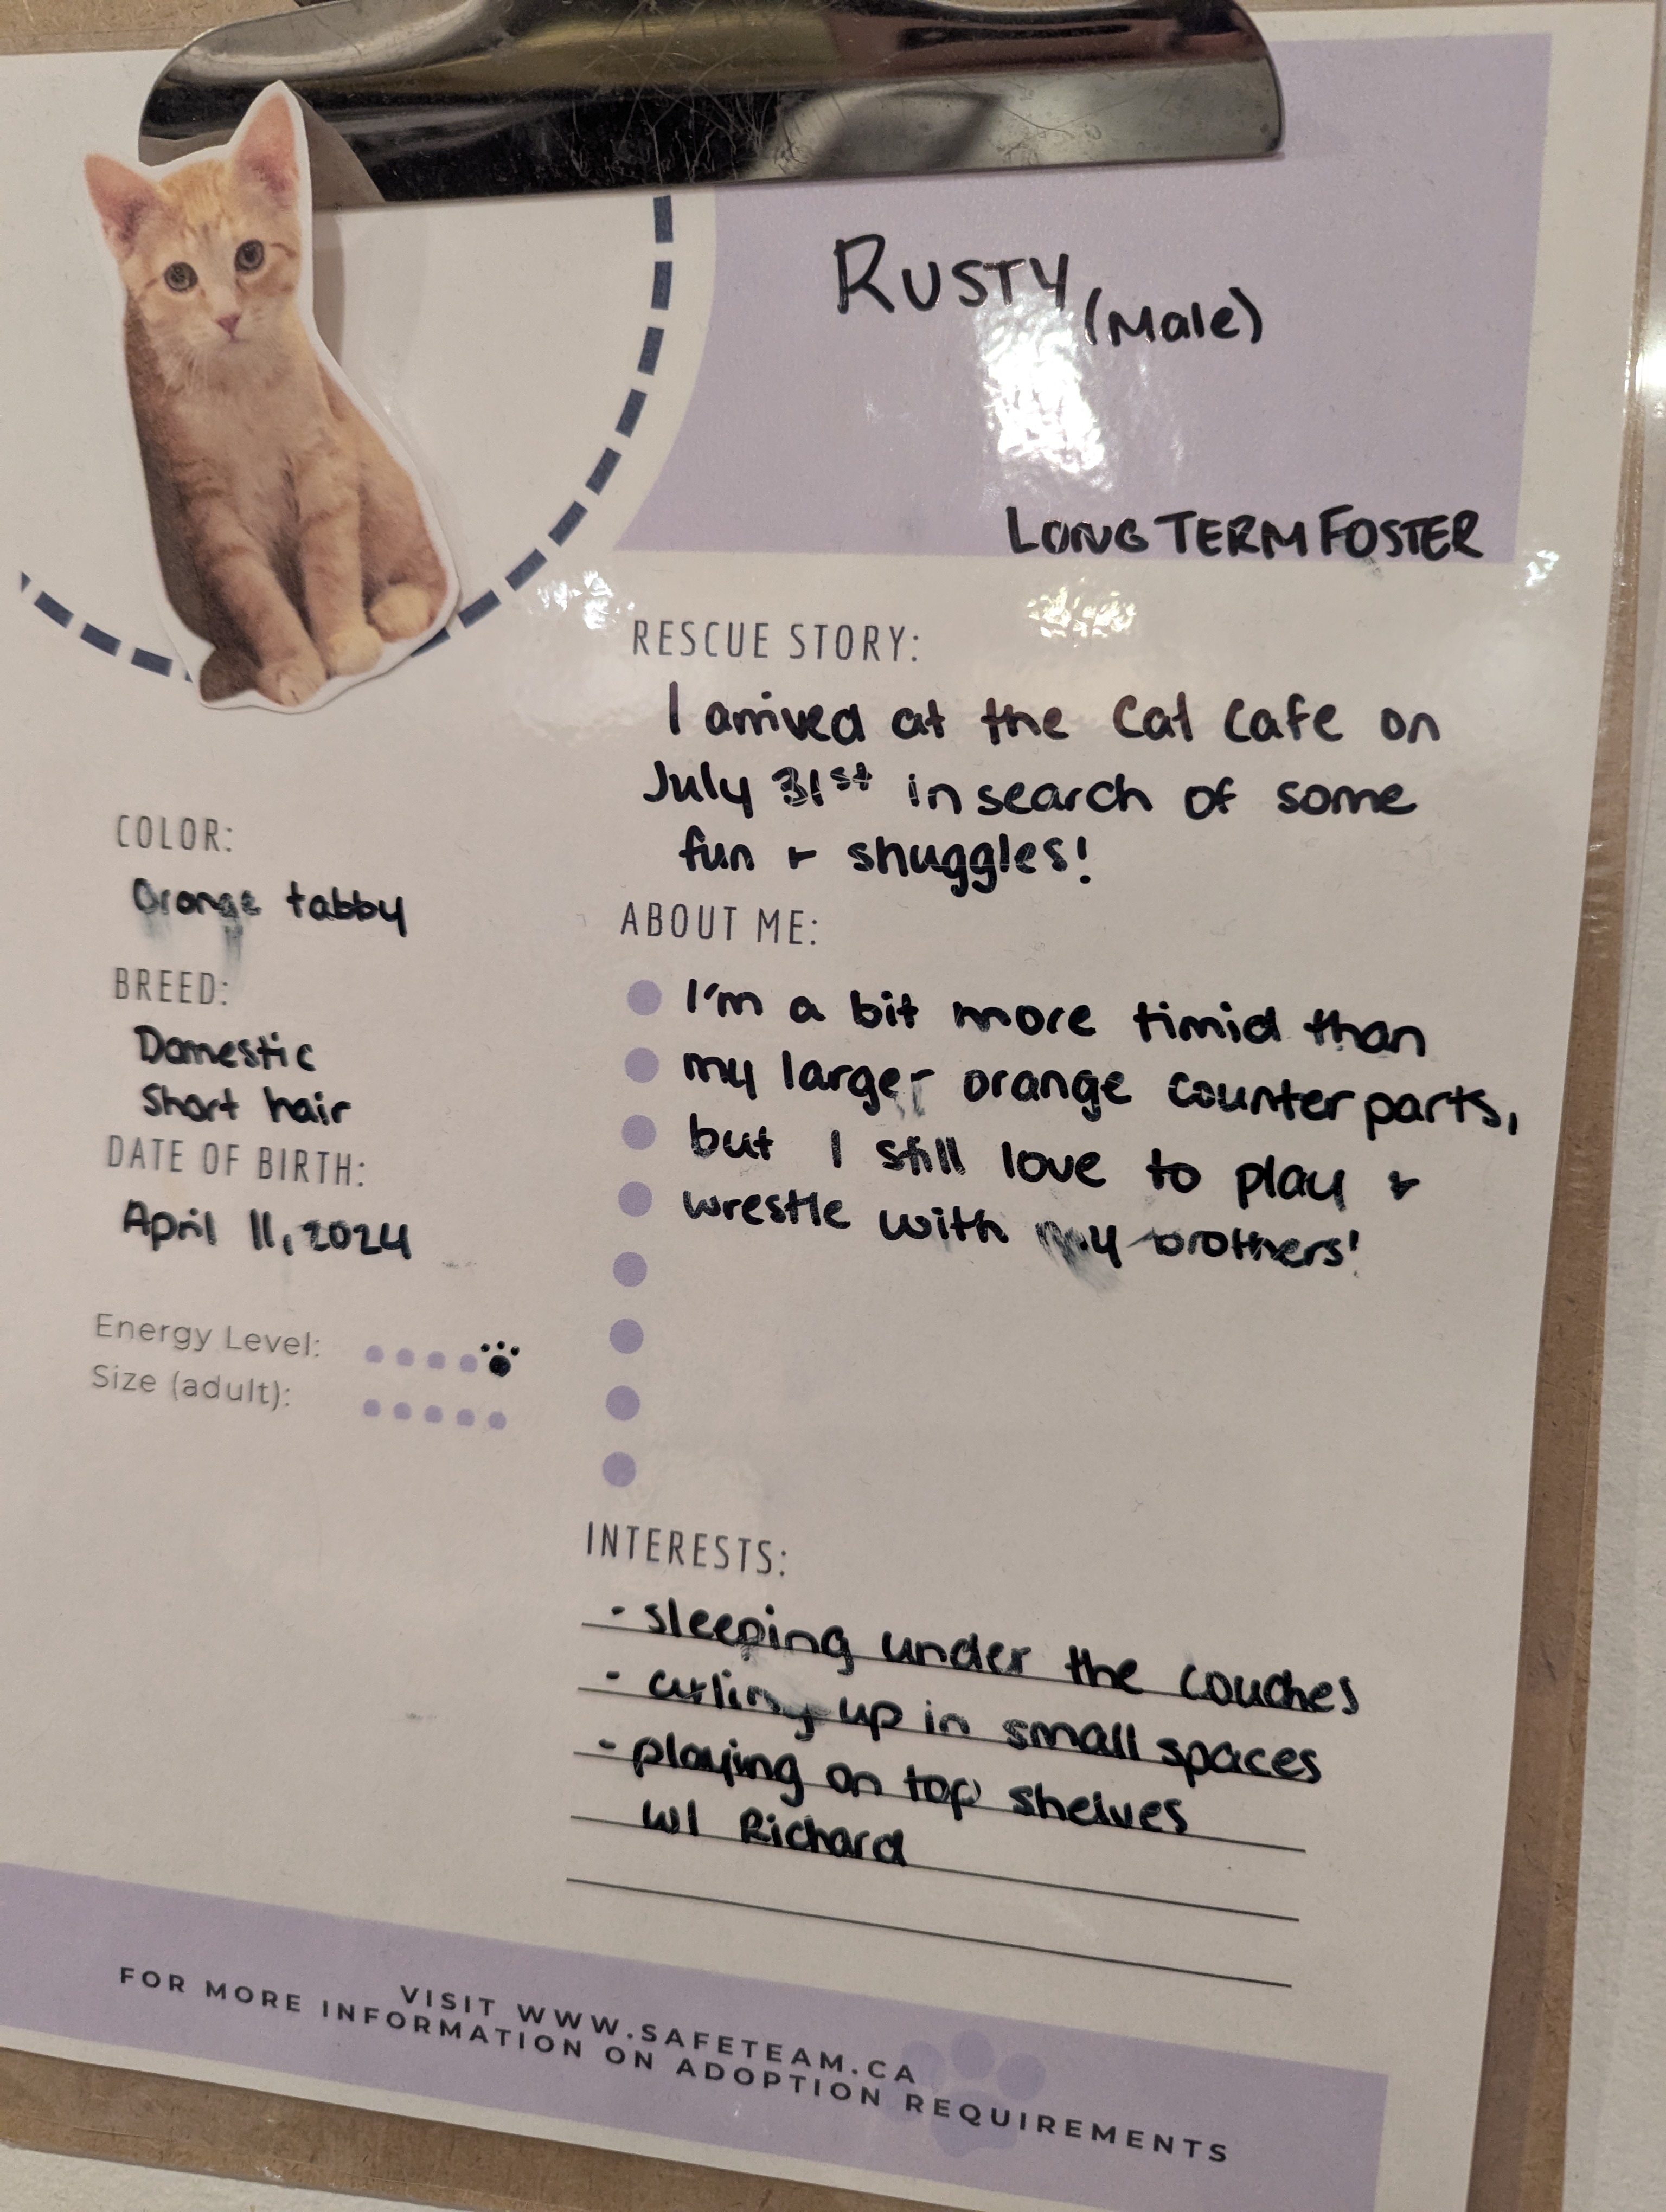 RUSTY (Male)
LONG TERM FOSTER
RESCUE STORY:
I arrived at the Cat Cafe on
July 31st in search of some
fun & snuggles!
COLOR:
Orange tabby
BREED:
Domestic
Short hair
DATE OF BIRTH:
April 11, 2024
Energy Level:
Size (adult):
ABOUT ME:
I'm a bit more timid than
my larger orange counterparts,
but I still love to play &
wrestle with my brothers!
INTERESTS:
- sleeping under the couches
- curling up in small spaces
- playing on top shelves
w/ Richard
VISIT WWW.SAFETEAM.CA
FOR MORE INFORMATION ON ADOPTION REQUIREMENTS